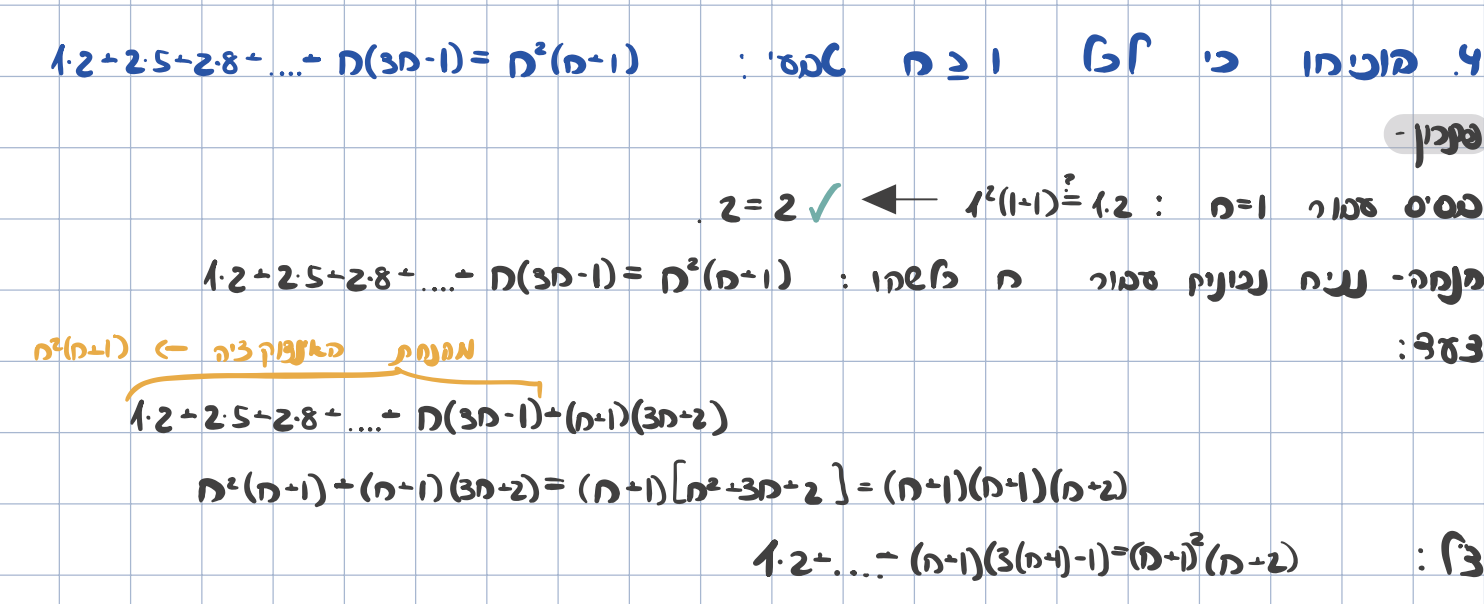 4. הוכיחו כי לכל n ≥ 1 טבעי: 1·2+2·5+2·8+....+ n(3n-1) = n²(n+1)
פתרון-
בסיס עבור n=1 : 1²(1+1) ≟ 1·2 ← 2=2 ✓.
הנחה- נניח נכונות עבור n כלשהו: 1·2+2·5+2·8+....+ n(3n-1) = n²(n+1)
צעד:
מהנחת האינדוקציה ← n²(n+1)
1·2+2·5+2·8+....+ n(3n-1)+(n+1)(3n+2)
n²(n+1)+(n+1)(3n+2) = (n+1)[n²+3n+2] = (n+1)(n+1)(n+2)
צ"ל: 1·2+....+(n+1)(3(n+1)-1)=(n+1)²(n+2)